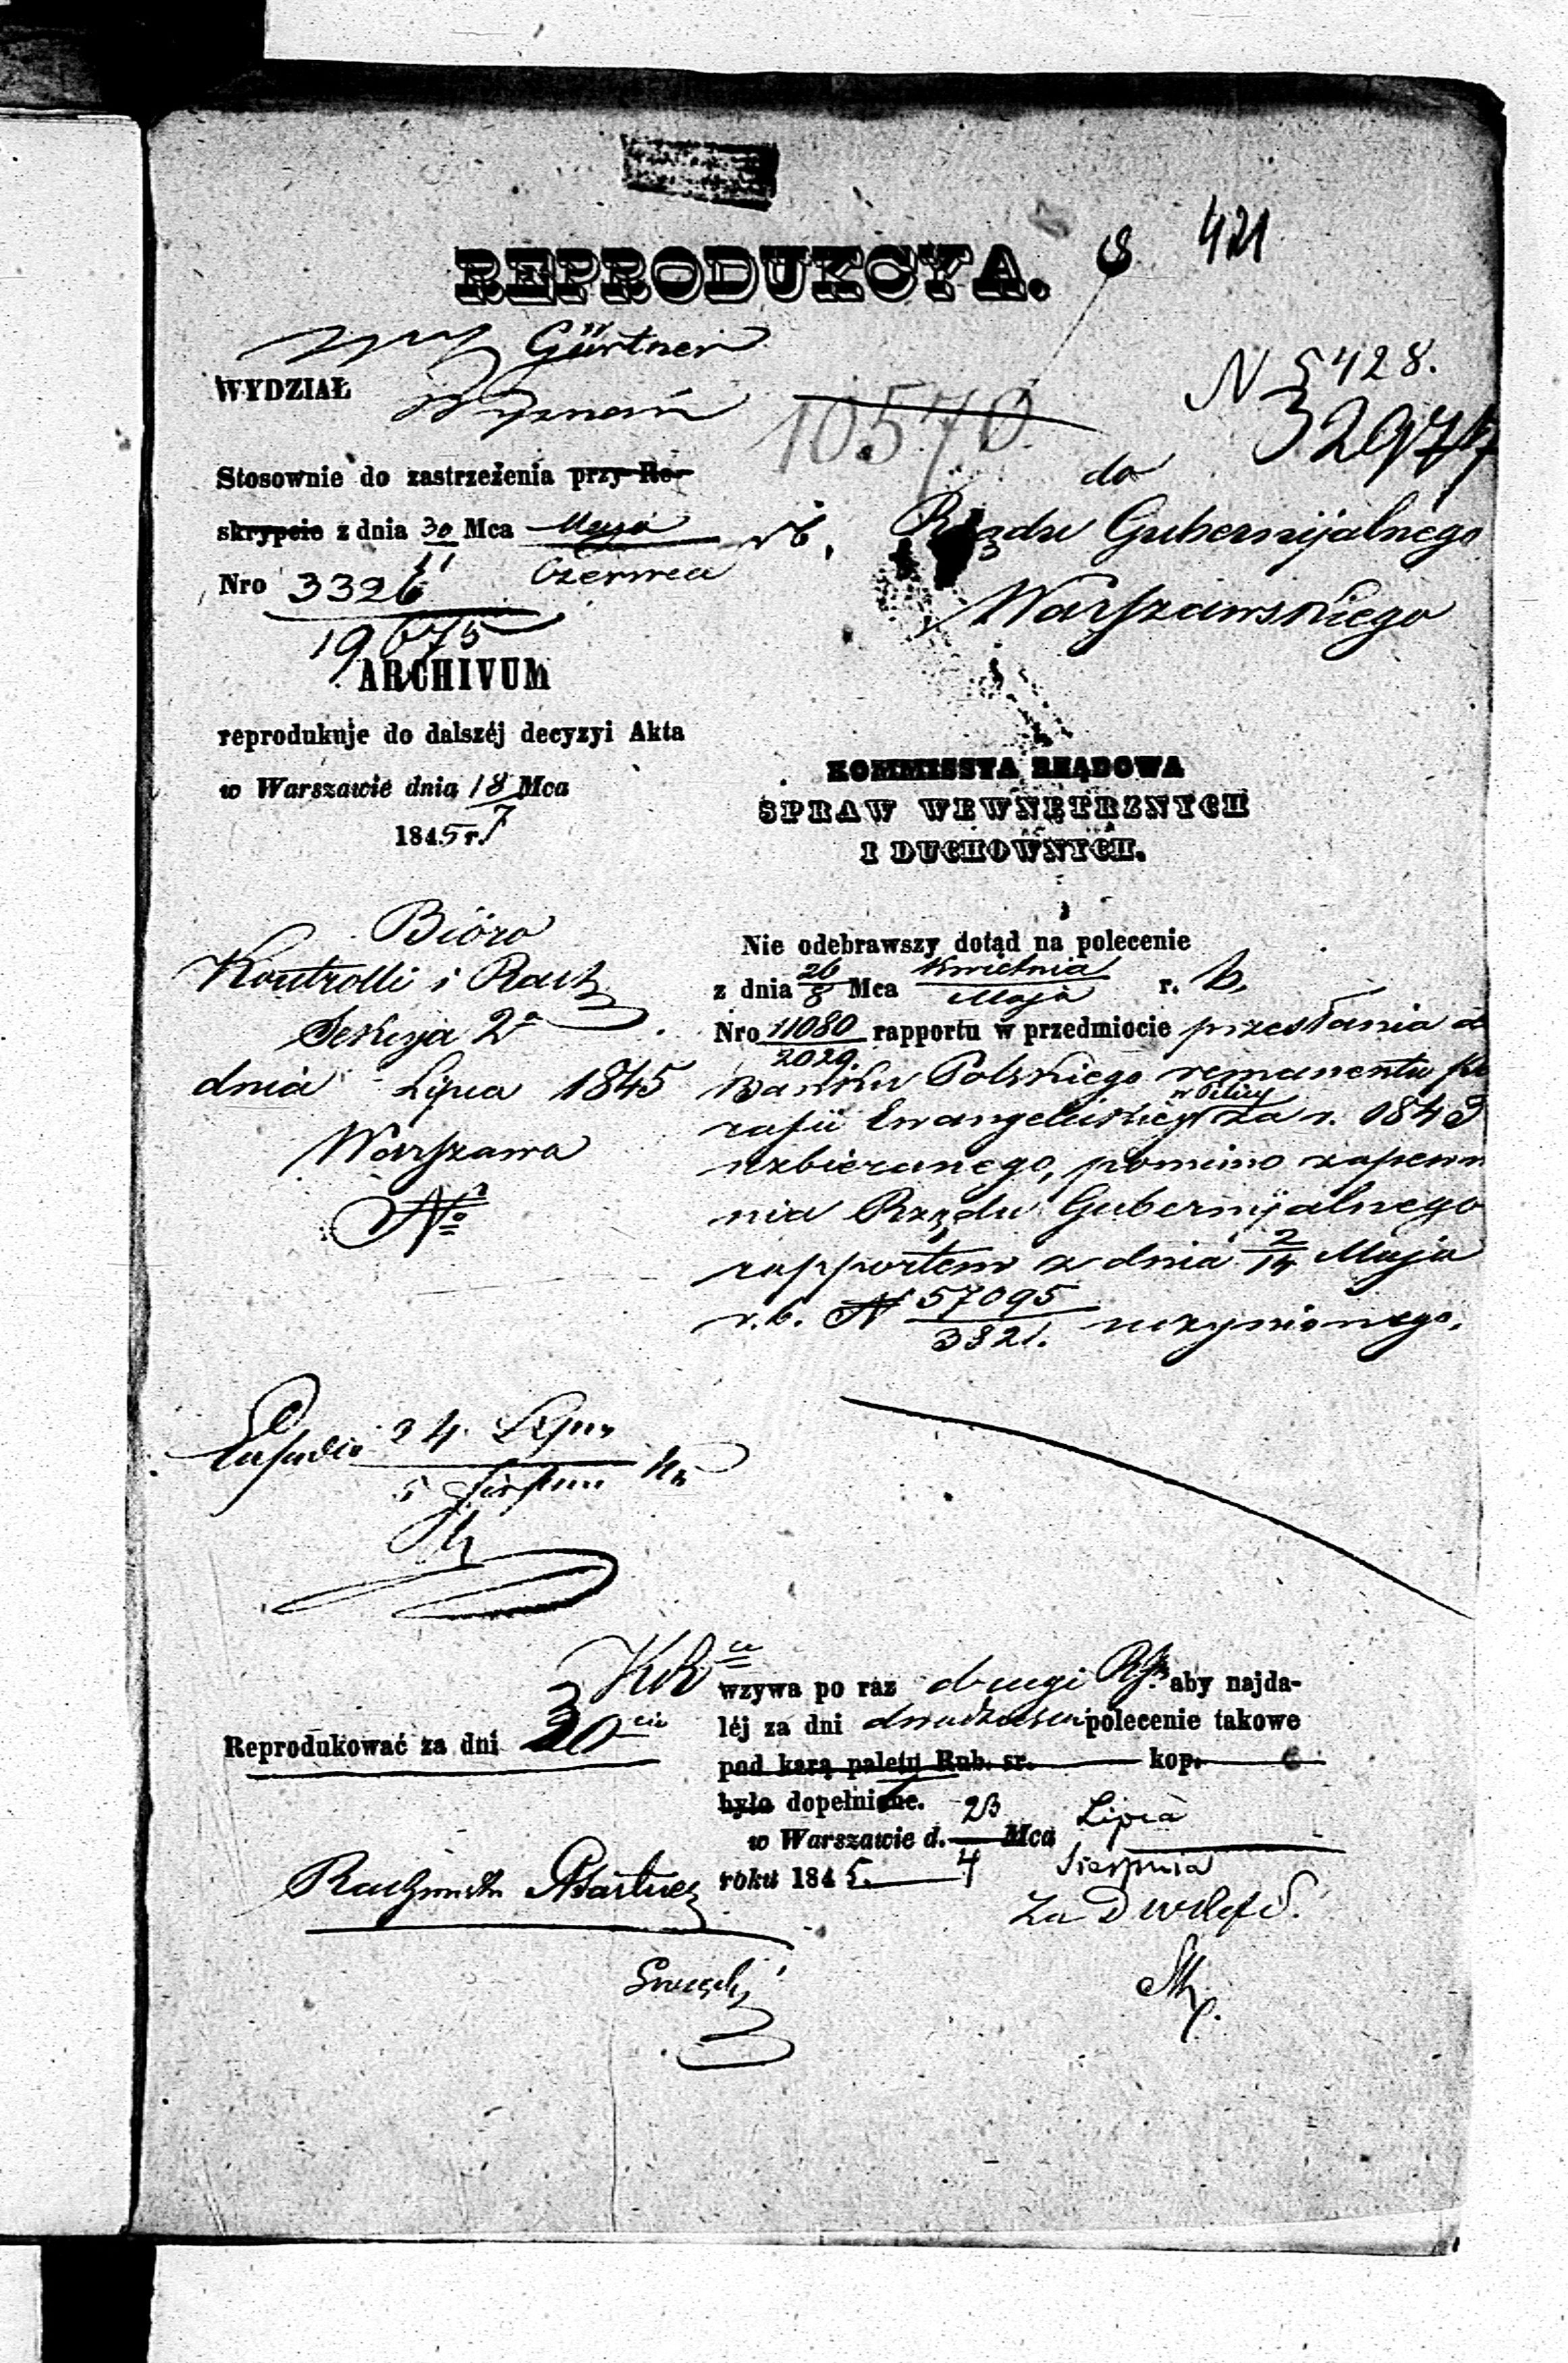 REPRODUKCYA.
8 421
Gärtner
WYDZIAŁ Wyznań
10570
N 5428.
32974
Stosownie do zastrzeżenia przy Re-
skrypcie z dnia 30/11 Mca Maja/Czerwca r b,
Nro 3326/19675
ARCHIVUM
reprodukuje do dalszéj decyzyi Akta
w Warszawie dnia 18/7 Mca
1845 r.
Bióro
Kontrolli i Rach
Sekcya 2a
dnia Lipca 1845
Warszawa
No
24. Lipca
5 Sierpnia
Reprodukować za dni 30
do
Rządu Gubernijalnego
Warszawskiego
KOMMISSYA RZĄDOWA
SPRAW WEWNĘTRZNYCH
I DUCHOWNYCH.
Nie odebrawszy dotąd na polecenie
z dnia 26/8 Mca Kwietnia/Maja r. b.
Nro 11080/2029. rapportu w przedmiocie przesłania do
Banku Polskiego remanentu pa
rafii Ewangelickiej w Pilicy za r. 1843
uzbieranego, pomimo zapewn
nia Rządu Gubernijalnego
rapportem z dnia 2/14 Maja
r. b. N 57095/3821. uczynionego.
wzywa po raz drugi aby najda-
léj za dni dwadzieścia polecenie takowe
pod karą paletu Rub. sr. kop.
było dopełnione.
w Warszawie d. 23/4 Mca Lipca/Sierpnia
roku 1845.
za D